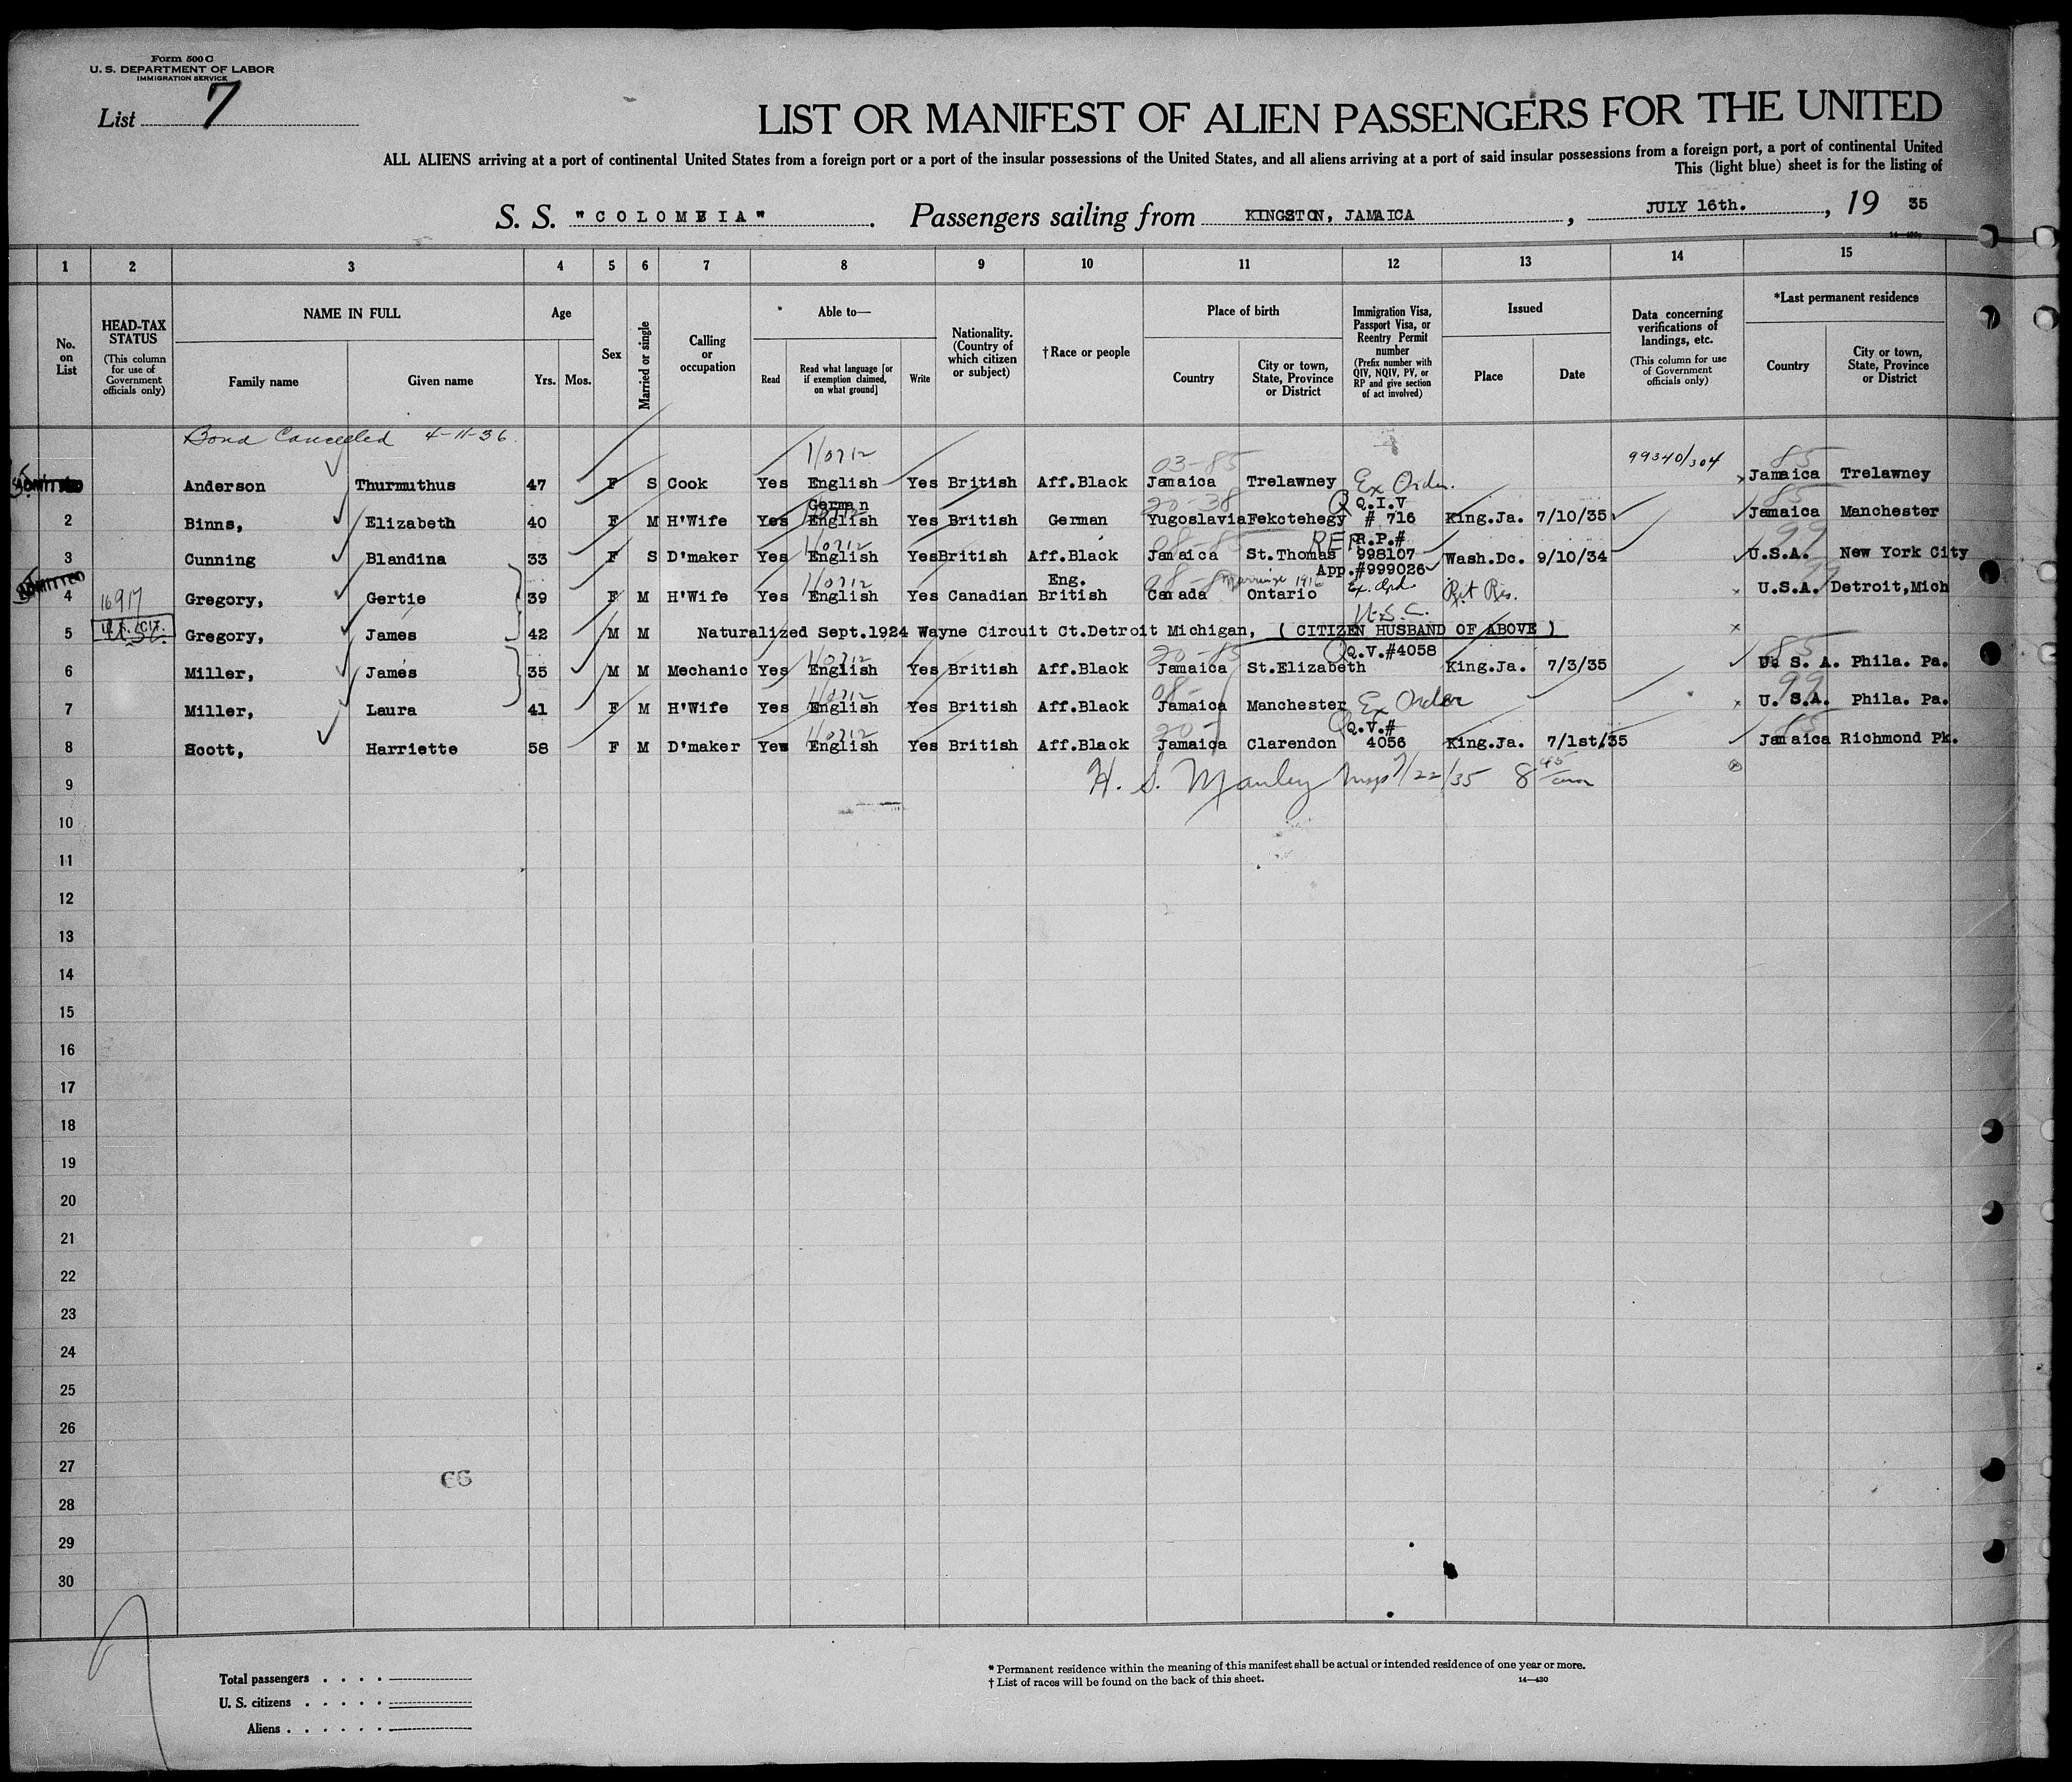 Form 500 C
U. S. DEPARTMENT OF LABOR
IMMIGRATION SERVICE
List 7
LIST OR MANIFEST OF ALIEN PASSENGERS FOR THE UNITED
ALL ALIENS arriving at a port of continental United States from a foreign port or a port of the insular possessions of the United States, and all aliens arriving at a port of said insular possessions from a foreign port, a port of continental United
This (light blue) sheet is for the listing of
S. S. "COLOMBIA". Passengers sailing from KINGSTON, JAMAICA, JULY 16th., 19 35
1 2 3 4 5 6 7 8 9 10 11 12 13 14 15
No. on List
HEAD-TAX STATUS (This column for use of Government officials only)
NAME IN FULL
Family name Given name
Age
Yrs. Mos.
Sex
Married or single
Calling or occupation
Able to—
Read
Read what language [or if exemption claimed, on what ground]
Write
Nationality. (Country of which citizen or subject)
†Race or people
Place of birth
Country
City or town, State, Province or District
Immigration Visa, Passport Visa, or Reentry Permit number (Prefix number with QIV, NQIV, PV, or RP and give section of act involved)
Issued
Place Date
Data concerning verifications of landings, etc. (This column for use of Government officials only)
*Last permanent residence
Country
City or town, State, Province or District
Bond Cancelled 4-11-36.
99340/304
ADMITTED Anderson Thurmuthus 47 F S Cook Yes English Yes British Aff.Black Jamaica Trelawney Ex Order. Jamaica Trelawney
03-85 85
German Q.I.V
2 Binns, Elizabeth 40 F M H'Wife Yes English Yes British German Yugoslavia Feketehegy # 716 King.Ja. 7/10/35 Jamaica Manchester
20-38 85
R.P.#
3 Cunning Blandina 33 F S D'maker Yes English Yes British Aff.Black Jamaica St.Thomas 998107 Wash.Dc. 9/10/34 U.S.A. New York City
App.#999026
ADMITTED
Eng.
4 Gregory, Gertie 39 F M H'Wife Yes English Yes Canadian British Canada Ontario Ex. Ord Ret Res. U.S.A. Detroit,Mich
16917
U.S.C.
5 Gregory, James 42 M M Naturalized Sept.1924 Wayne Circuit Ct.Detroit Michigan, ( CITIZEN HUSBAND OF ABOVE )
Q.V.#4058
6 Miller, James 35 M M Mechanic Yes English Yes British Aff.Black Jamaica St.Elizabeth King.Ja. 7/3/35 U. S. A. Phila. Pa.
7 Miller, Laura 41 F M H'Wife Yes English Yes British Aff.Black Jamaica Manchester Ex Order U. S.A. Phila. Pa.
Q.V.#
8 Scott, Harriette 58 F M D'maker Yes English Yes British Aff.Black Jamaica Clarendon 4056 King.Ja. 7/1st/35 Jamaica Richmond Pk.
H. S. Manley 7/22/35 8 45 am
9
10
11
12
13
14
15
16
17
18
19
20
21
22
23
24
25
26
27
66
28
29
30
Total passengers
U. S. citizens
Aliens
* Permanent residence within the meaning of this manifest shall be actual or intended residence of one year or more.
† List of races will be found on the back of this sheet.
14—430